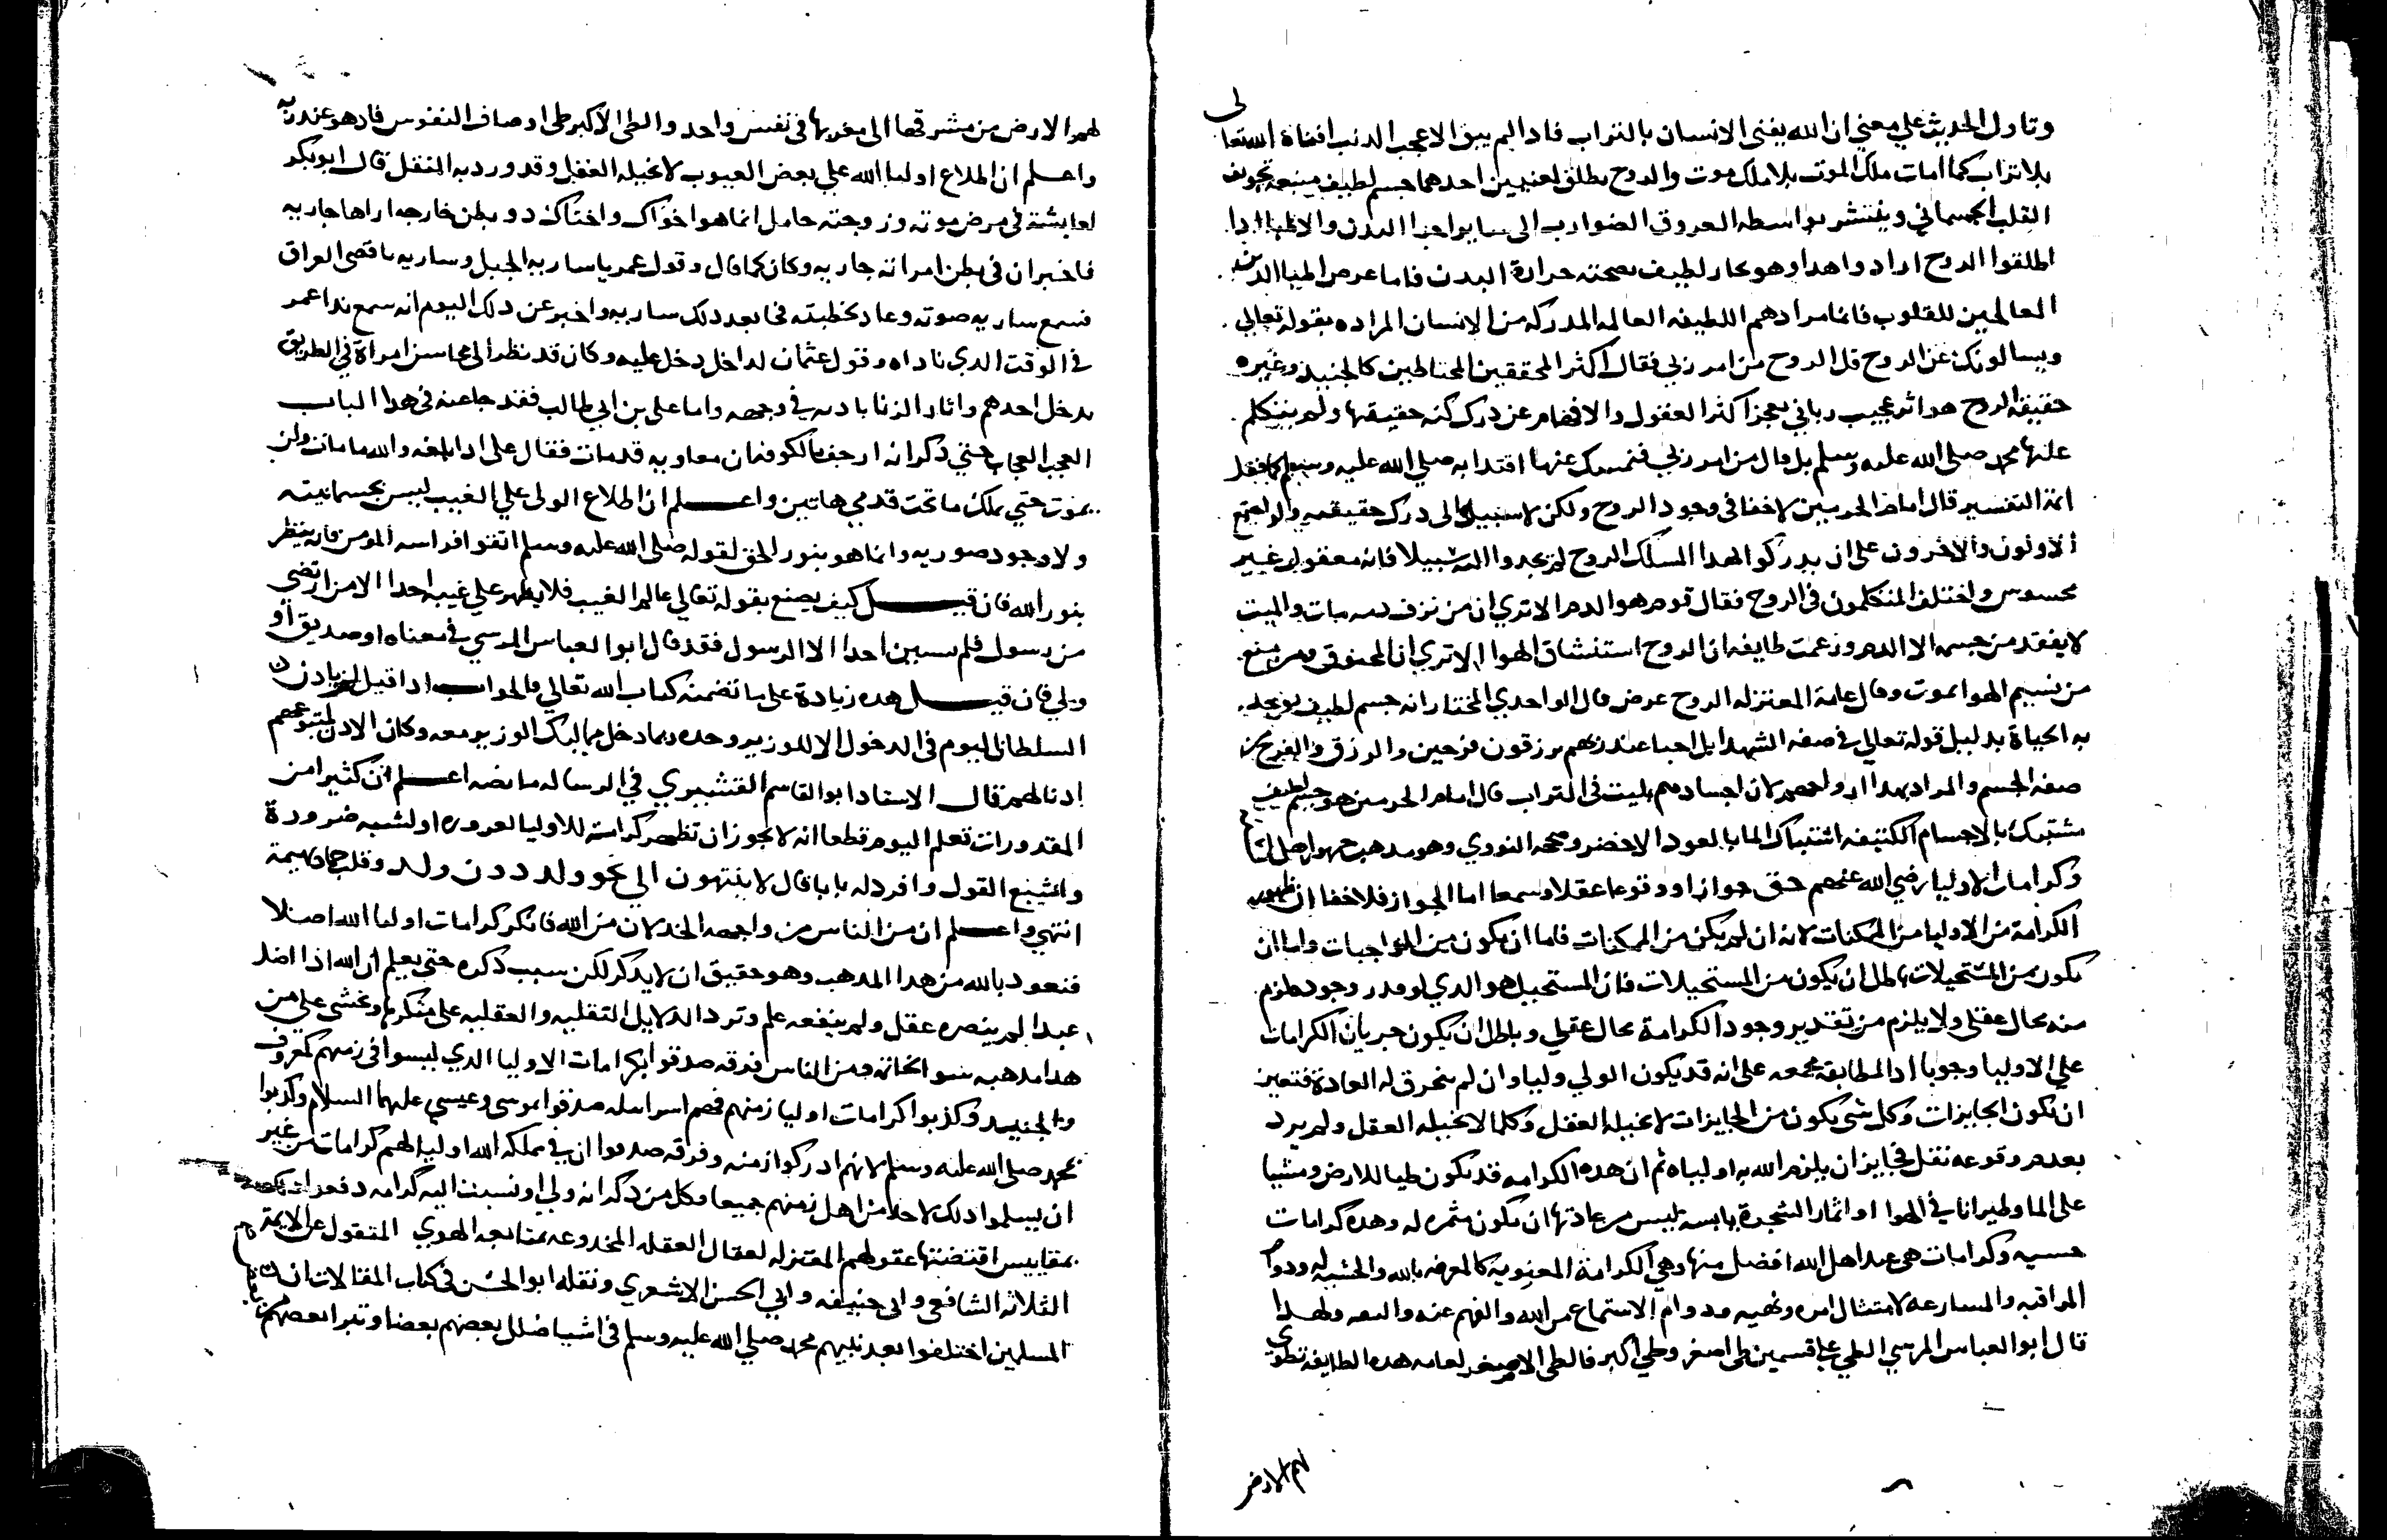 وتاول الحديث علي معني ان الله يفني الانسان بالتراب فاذا لم يبق الا عجب الذنب افناه الله تعالى
بلا تراب كما امات ملك الموت بلا ملك موت والروح يطلق لمعنيين احدهما جسم لطيف منبعه تجويف
القلب الجسماني وينتشر بواسطه العروق الضوارب الى ساير اجزا البدن والاطبا اذا
اطلقوا الروح ارادوا هدا وهو بخار لطيف حرارة البدن فاما غرض اطبا الدين
العالمين للقلوب فانما مرادهم اللطيفه العالمه المدركه من الانسان المراده بقوله تعالي
ويسالونك عن الروح قل الروح من امر ربي فقال اكثر المحققين المحتاطين كالجنيد وغيره
حقيقة الروح هو امر عجيب رباني يعجز اكثر العقول والافهام عن درك كنه حقيقتها ولم يتكلم
عليها محمد صلى الله عليه وسلم بل قال من امر ربي فنمسك عنها اقتدا به صلي الله عليه وسلم كما فعل
ايمة التفسير قال امام الحرمين لا خفا في وجود الروح ولكن لا سبيل الى درك حقيقته ولو اجتمع
الاولون والاخرون على ان يدركوا لهدا المسلك الروح لم يجدوا اليه سبيلا فانه معقول غير
محسوس واختلف المتكلمون في الروح فقال قوم هو الدم الا تري ان من نزف دمه مات والميت
لا يفقد من جسمه الا الدم وزعمت طايفه ان الروح استنشاق الهوا الا تري ان المخنوق ومن منع
من نسيم الهوا يموت وقال عامة المعتزله الروح عرض قال الواحدي المختار انه جسم لطيف توجد
به الحياة بدليل قوله تعالي في صفه الشهدا بل احيا عند ربهم يرزقون فرحين والرزق والفرح من
صفه الجسم والمراد بهدا ارواحهم لان اجسادهم بليت في التراب قال امام الحرمين هو جسم لطيف
مشتبك بالاجسام الكثيفه اشتباك الما بالعود الاخضر وصححه النووي وهو مدهب جمهور اهل السنه
وكرامات الاوليا رضي الله عنهم حق جوازا ووقوعا عقلا وسمعا اما الجواز فلا خفا ان ظهور
الكرامة من الاوليا من الممكنات لانه ان لم يكن من الممكنات فاما ان يكون من الواجبات واما ان
يكون من المستحيلات باطل ان يكون من المستحيلات فان المستحيل هو الدي لو قدر وجوده لزم
منه محال عقلي ولا يلزم من تقدير وجود الكرامة محال عقلي وباطل ان يكون جريان الكرامات
علي الاوليا وجوبا اد الطايفة مجمعه على انه قد يكون الولي وليا وان لم تنخرق له العادة فتعين
ان يكون الجايزات وكل شي يكون من الجايزات لا يحيله العقل وكلما لا يحيله العقل ولم يرد
بعدم وقوعه نقل فجايز ان يلزم الله به اولياه ثم ان هده الكرامه قد تكون طيا للارض ومشيا
على الما وطيرانا في الهوا او اثمار الشجرة يابسه ليس من عادتها ان تكون مثمره له وهده كرامات
حسيه وكرامات هي عند اهل الله افضل منها وهي الكرامة المعنويه كالمعرفه بالله والخشيه له ودوام
المراقبه والمسارعه لامتثال امره ونهيه ودوام الاستماع من الله والفهم عنه ولهدا
قال ابو العباس المرسي الطي علي قسمين طي اصغر وطي اكبر فالطي الاصغر لعامه هده الطايفه تطوي
لهم الارض
لهم الارض من مشرقها الى مغربها في نفس واحد والطي الاكبر طي اوصاف النفوس فاد هو عند ربه
واعلم ان اطلاع اوليا الله علي بعض الغيوب لا يحيله العقل وقد ورد به النقل قال ابو بكر
لعايشة في مرض موته وزوجته حامل انما هو اخواك واختاك دو بطن خارجه اراها جاريه
فاخبر ان في بطن امراته جاريه وكان كما قال وقول عمر يا ساريه الجبل وساريه باقصى العراق
فسمع ساريه صوته وعاد لخطبته فجا بعد دلك ساريه واخبر عن دلك اليوم انه سمع ندا عمر
في الوقت الدي ناداه وقول عثمان لداخل دخل عليه وكان قد نظر الى محاسن امراة في الطريق
يدخل احدهم واثار الزنا باديه في وجهه واما علي بن ابي طالب فقد جا عنه في هدا الباب
العجب العجاب حتي ذكر انه ارجف بالكوفه ان معاويه قد مات فقال على ادا بلغه والله ما مات ولن
يموت حتي يملك ما تحت قدمي هاتين واعلم ان اطلاع الولى علي الغيب ليس بجسمانيته
ولا وجود صوريه وانما هو بنور الحق لقوله صلى الله عليه وسلم اتقوا فراسه المومن فانه ينظر
بنور الله فان قيل كيف يصنع بقوله تعالي عالم الغيب فلا يظهر علي غيبه احدا الا من ارتضي
من رسول فلم يستثن احدا الا الرسول فقد قال ابو العباس المرسي في معناه او صديق او
ولي فان قيل هده زيادة على ما تضمنه كتاب الله تعالي فالجواب ادا قيل لم يادن
السلطان اليوم في الدخول الا للوزير وحده ربما دخل مماليك الوزير معه وكان الادن لمتبوعهم
ادنا لهم قال الاستاد ابو القاسم القشيري في الرساله ما نصه اعلم ان كثيرا من
المقدورات تعلم اليوم قطعا انه لا يجوز ان تظهر كرامة للاوليا لضروره او لشبه ضرورة
واشبع القول وافرد له بابا قال لا ينتهون الي نحو ولد دون ولد وقلب جماد بهيمة
انتهي واعلم ان من الناس من واجهه الخدلان من الله فانكر كرامات اوليا الله اصلا
فنعود بالله من هدا المدهب وهو حقيق ان لا يدكر لكن سبب ذكره حتي يعلم ان الله اذا اضل
عبدا لم ينصره عقل ولم ينفعه علم وترد الدلايل النقليه والعقليه على منكرها ونخشى على من
هدا مدهبه سو الخاتمه ومن الناس فرقه صدقوا بكرامات الاوليا الدي ليسوا في زمنهم كمعروف
والجنيد وكذبوا كرامات اوليا زمنهم فهم اسراييليه صدقوا بموسى وعيسي عليهما السلام وكدبوا
بمحمد صلى الله عليه وسلم لانهم ادركوا زمنه وفرقه صدقوا ان في مملكه الله اوليا لهم كرامات من غير
ان يسلموا دلك لاحد من اهل زمنهم جميعا فكل من ذكر انه ولي او نسبت اليه كرامه دفعوا
بمقاييس اقتضتها عقولهم المعتزله لعقال العقله المخدوعه بمتابعه الهوي المنقول عن الايمة
الثلاثه الشافعي وابي حنيفه وابي الحسن الاشعري ونقله ابو الحسن في كتاب المقالات ان
المسلمين اختلفوا بعد نبيهم محمد صلي الله عليه وسلم في اشيا ضلل بعضهم بعضا وتبرا بعضهم من بعض